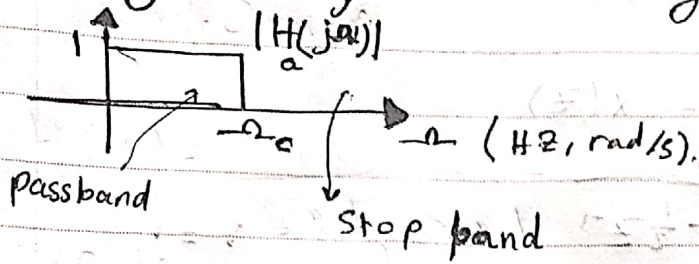 1
|Ha(jΩ)|
Ωc
Ω (HZ, rad/s).
passband
Stop band